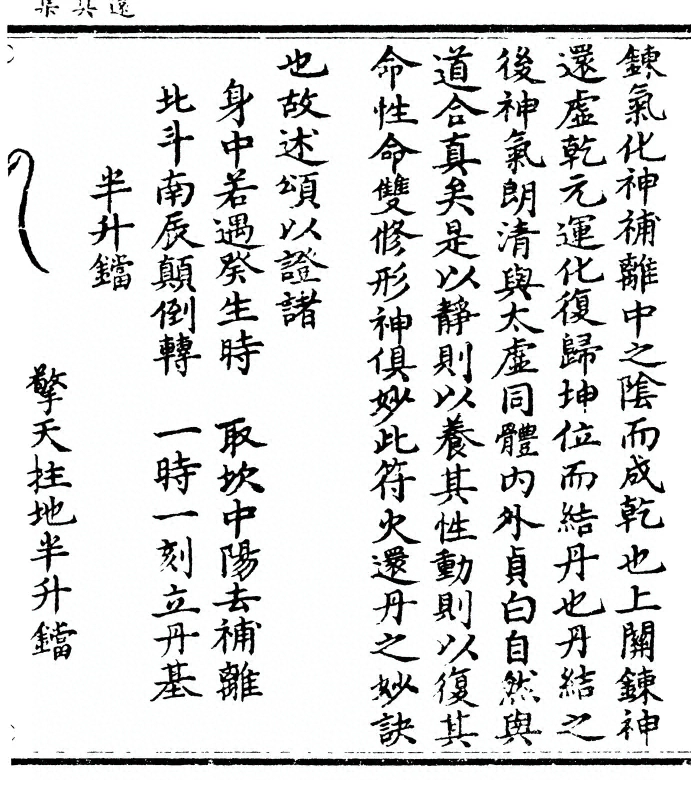 鍊氣化神補離中之陰而成乾也上關鍊神
還虛乾元運化復歸坤位而結丹也丹結之
後神氣朗清與太虛同體內外貞白自然與
道合真矣是以靜則以養其性動則以復其
命性命雙修形神俱妙此符火還丹之妙訣
也故述頌以證諸
身中若遇癸生時　取坎中陽去補離
北斗南辰顛倒轉　一時一刻立丹基
半升鐺
擎天拄地半升鐺